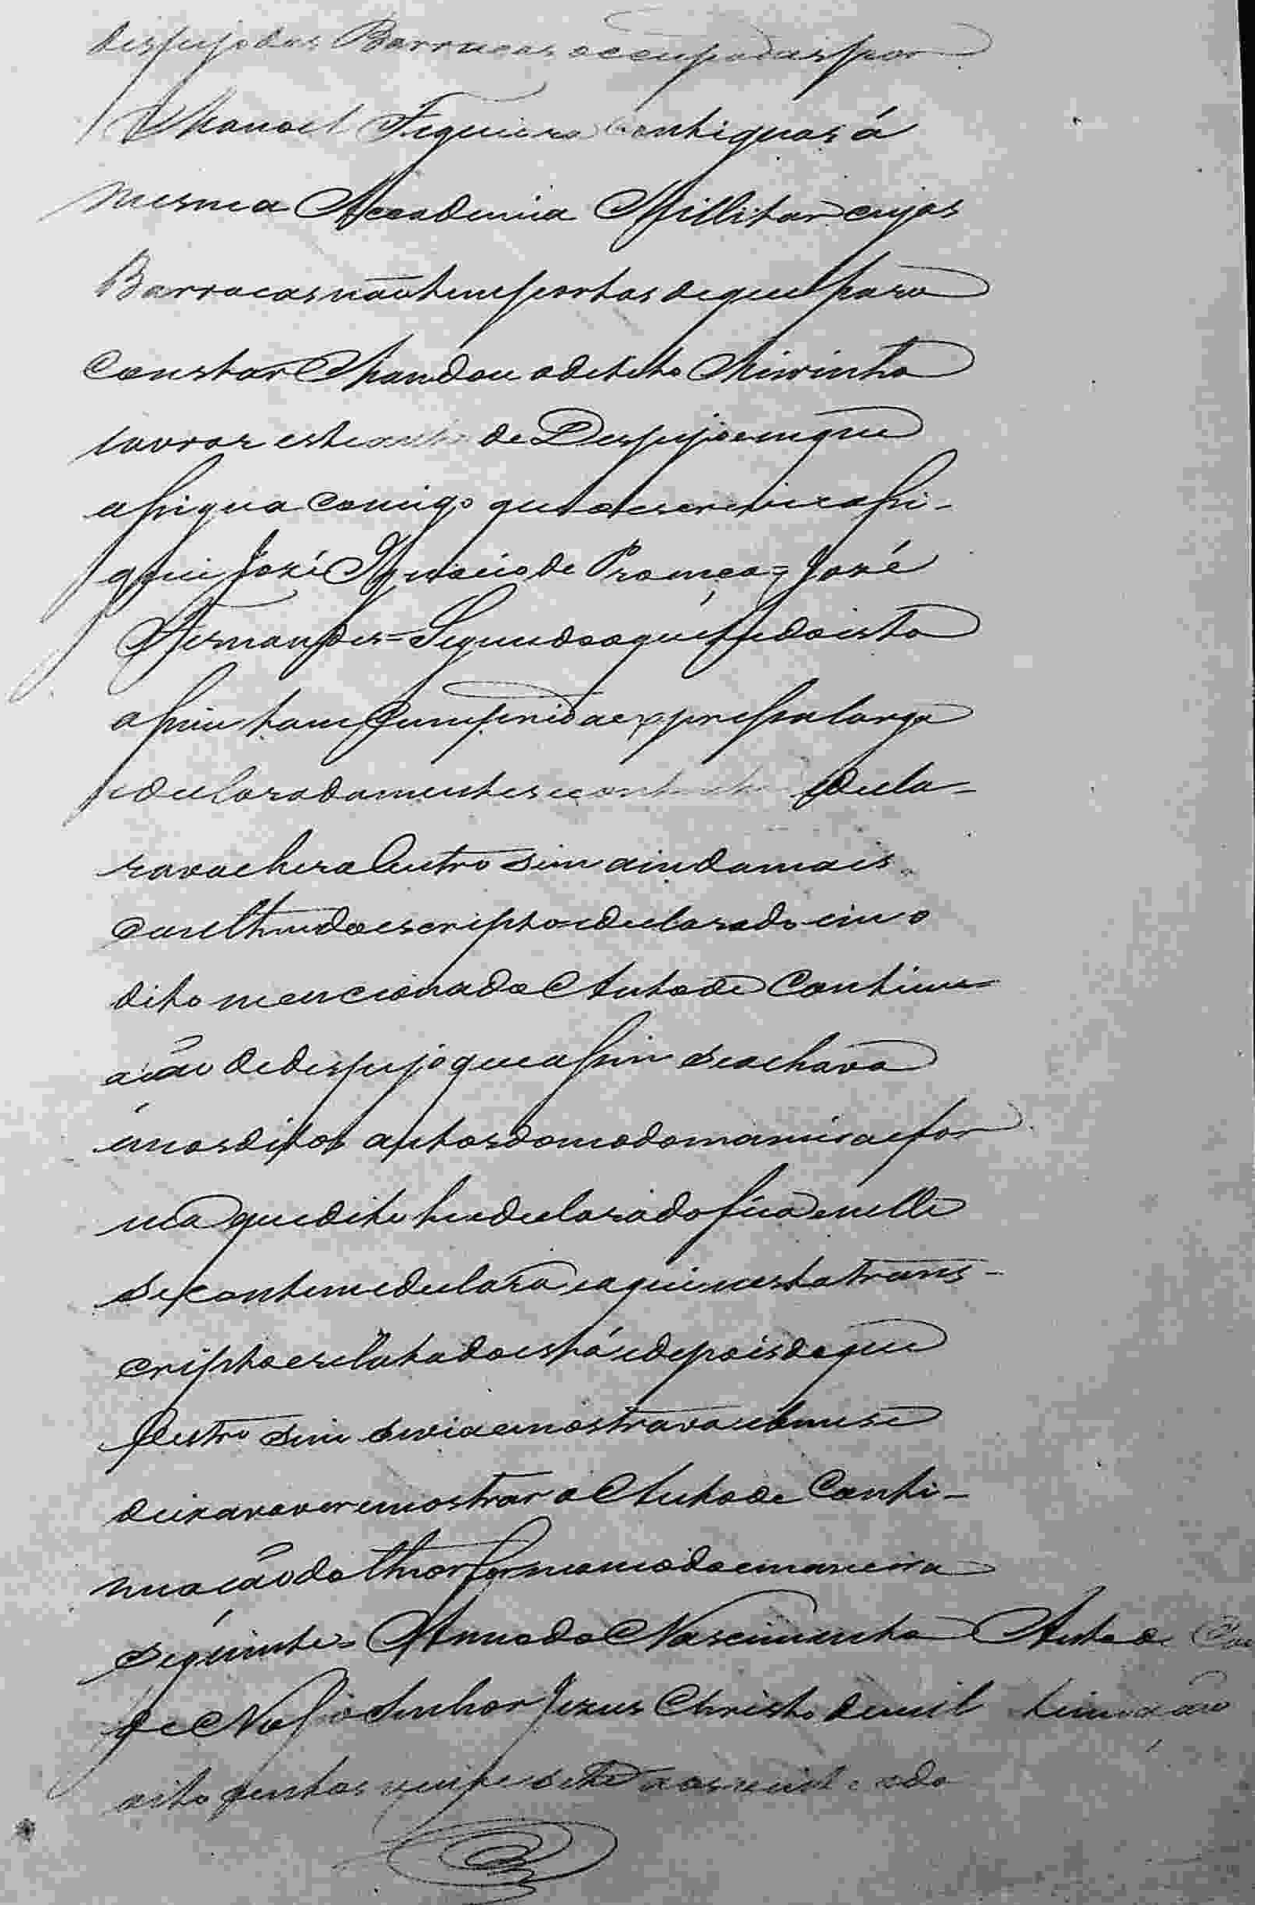 despejo das Barracas occupadas por
Manoel Figueira Contiguas á
mesma Accademia Millitar cujas
Barracas não tem portas de que para
constar Mandou o ditto Meirinho
lavrar este auto de Despejo em que
assigna comigo que o escrevi e assi-
gnei José Ignacio de = José
Fernandes = Segundo o que tudo isto
assim tam Cumprida expressa larga
e declaradamente se continha e decla-
rava e hera Outro sim ainda mais
Conthudo escripto e declarado em o
dito mencionado Auto de Continu-
acão de despejo que assim se achava
em os ditos autos do modo maneira e for
ma que dito he e declarado fica e nelle
se contem e declara e aqui nesta trans-
cripto e rellatado está e depois do que
Outro sim se via e mostrava e bem se
deixava ver e mostrar o Auto de Conti-
nuacão do theor forma modo e maneira
seguinte = Anno do Nascimento
de Nosso Senhor Jezus Christo de mil
oito centos vinte e sete aos vinte e do
Auto de Con
tinuacão